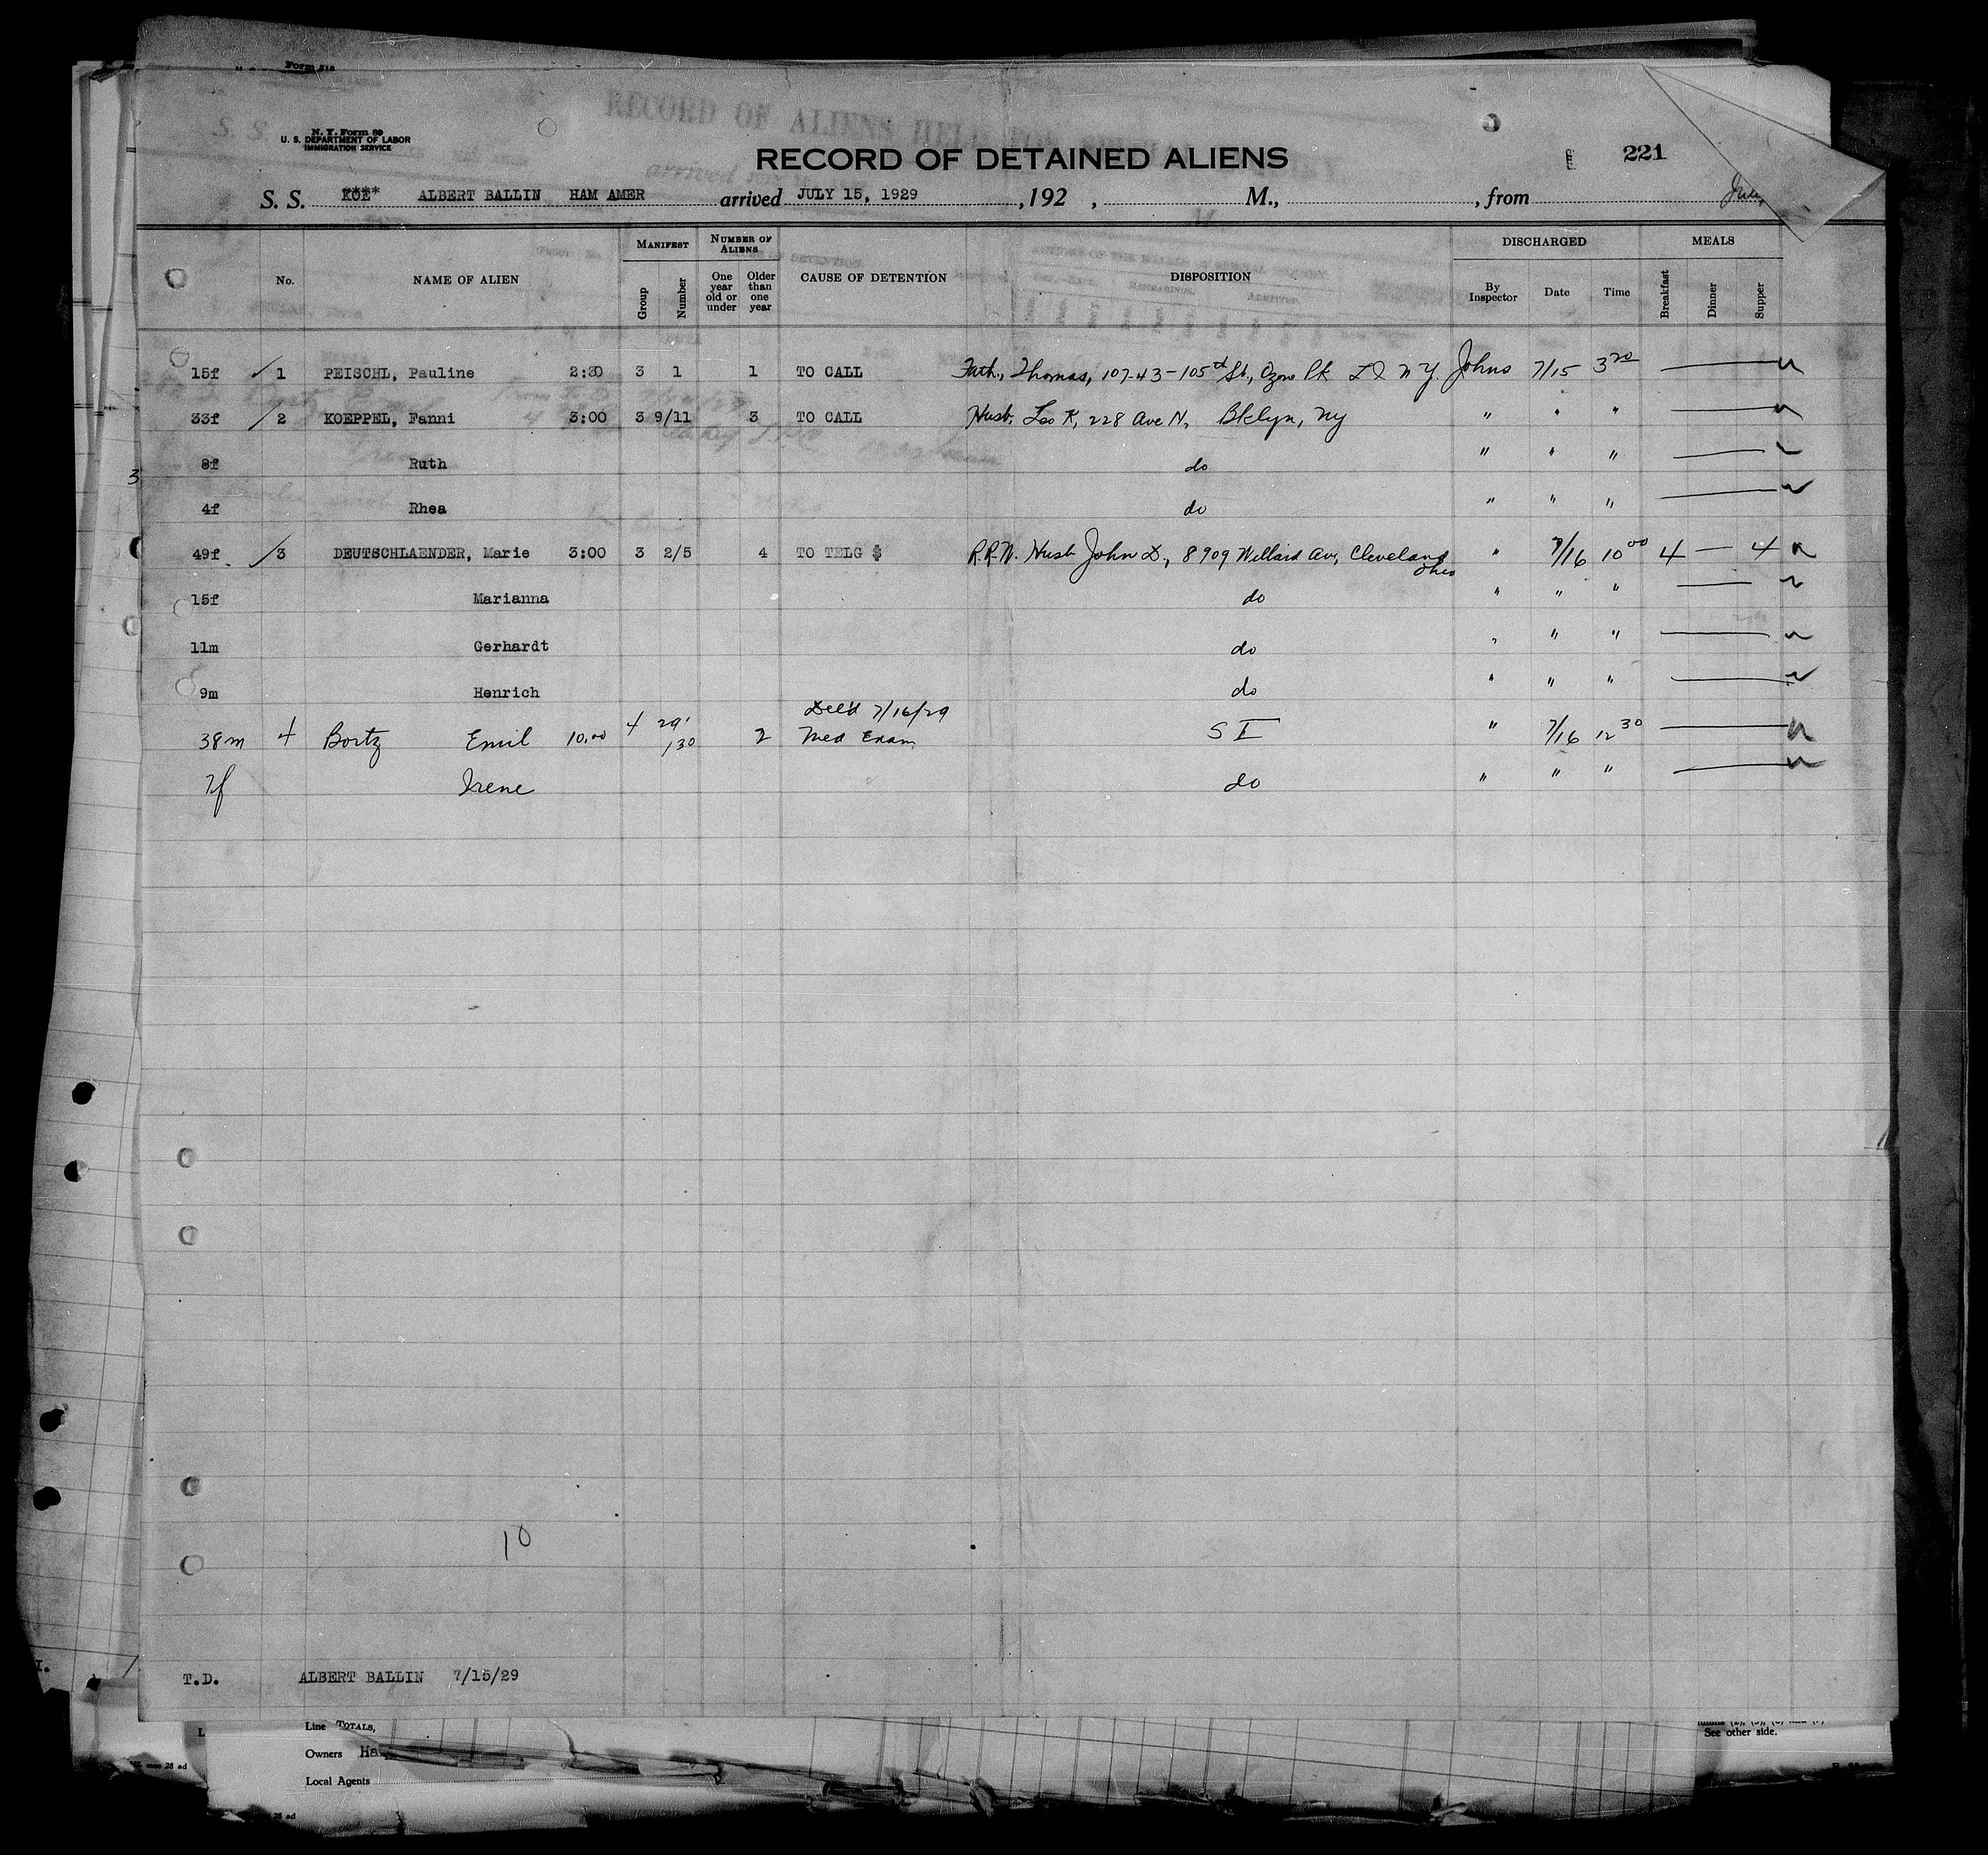 N. Y. Form 89
U. S. DEPARTMENT OF LABOR
IMMIGRATION SERVICE
RECORD OF DETAINED ALIENS
221
S. S. ALBERT BALLIN HAM AMER arrived JULY 15, 1929 , 192 , M., , from
No. NAME OF ALIEN MANIFEST Group Number NUMBER OF ALIENS One year old or under Older than one year CAUSE OF DETENTION DISPOSITION DISCHARGED By Inspector Date Time MEALS Breakfast Dinner Supper
15f 1 PEISCHL, Pauline 2:30 3 1 1 TO CALL Fath., Thomas, 107-43-105th St., Ozone Pk L I N Y. Johns 7/15 3 20
33f 2 KOEPPEL, Fanni 3:00 3 9/11 3 TO CALL Husb. Leo K, 228 Ave N, Bklyn, Ny " " "
8f Ruth do " " "
4f Rhea do " " "
49f 3 DEUTSCHLAENDER, Marie 3:00 3 2/5 4 TO TELG $ R.R.N. Husb John D., 8909 Willard Av, Cleveland Ohio " 7/16 10 00 4 — 4
15f Marianna do " " "
11m Gerhardt do " " "
9m Henrich do " " "
Del'd 7/16/29
38m 4 Bortz Emil 10.00 4 29/130 2 Med Exam S I " 7/16 12 30
7f Irene do " " "
10
T.D. ALBERT BALLIN 7/15/29
Line TOTALS,
See other side.
Owners
Local Agents